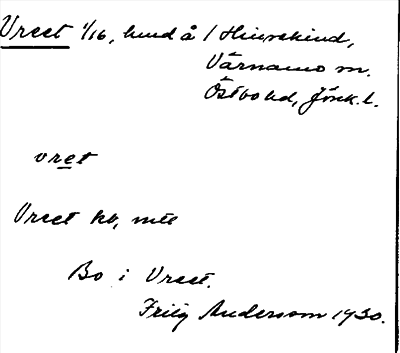 Vreet 1/16, hmd å / Hinsekind,
Värnamo m.
Östbo hd, Jönk. l.
vret
Vreet kb, mtl
Bo i Vreet.
Fritz Andersson 1930.